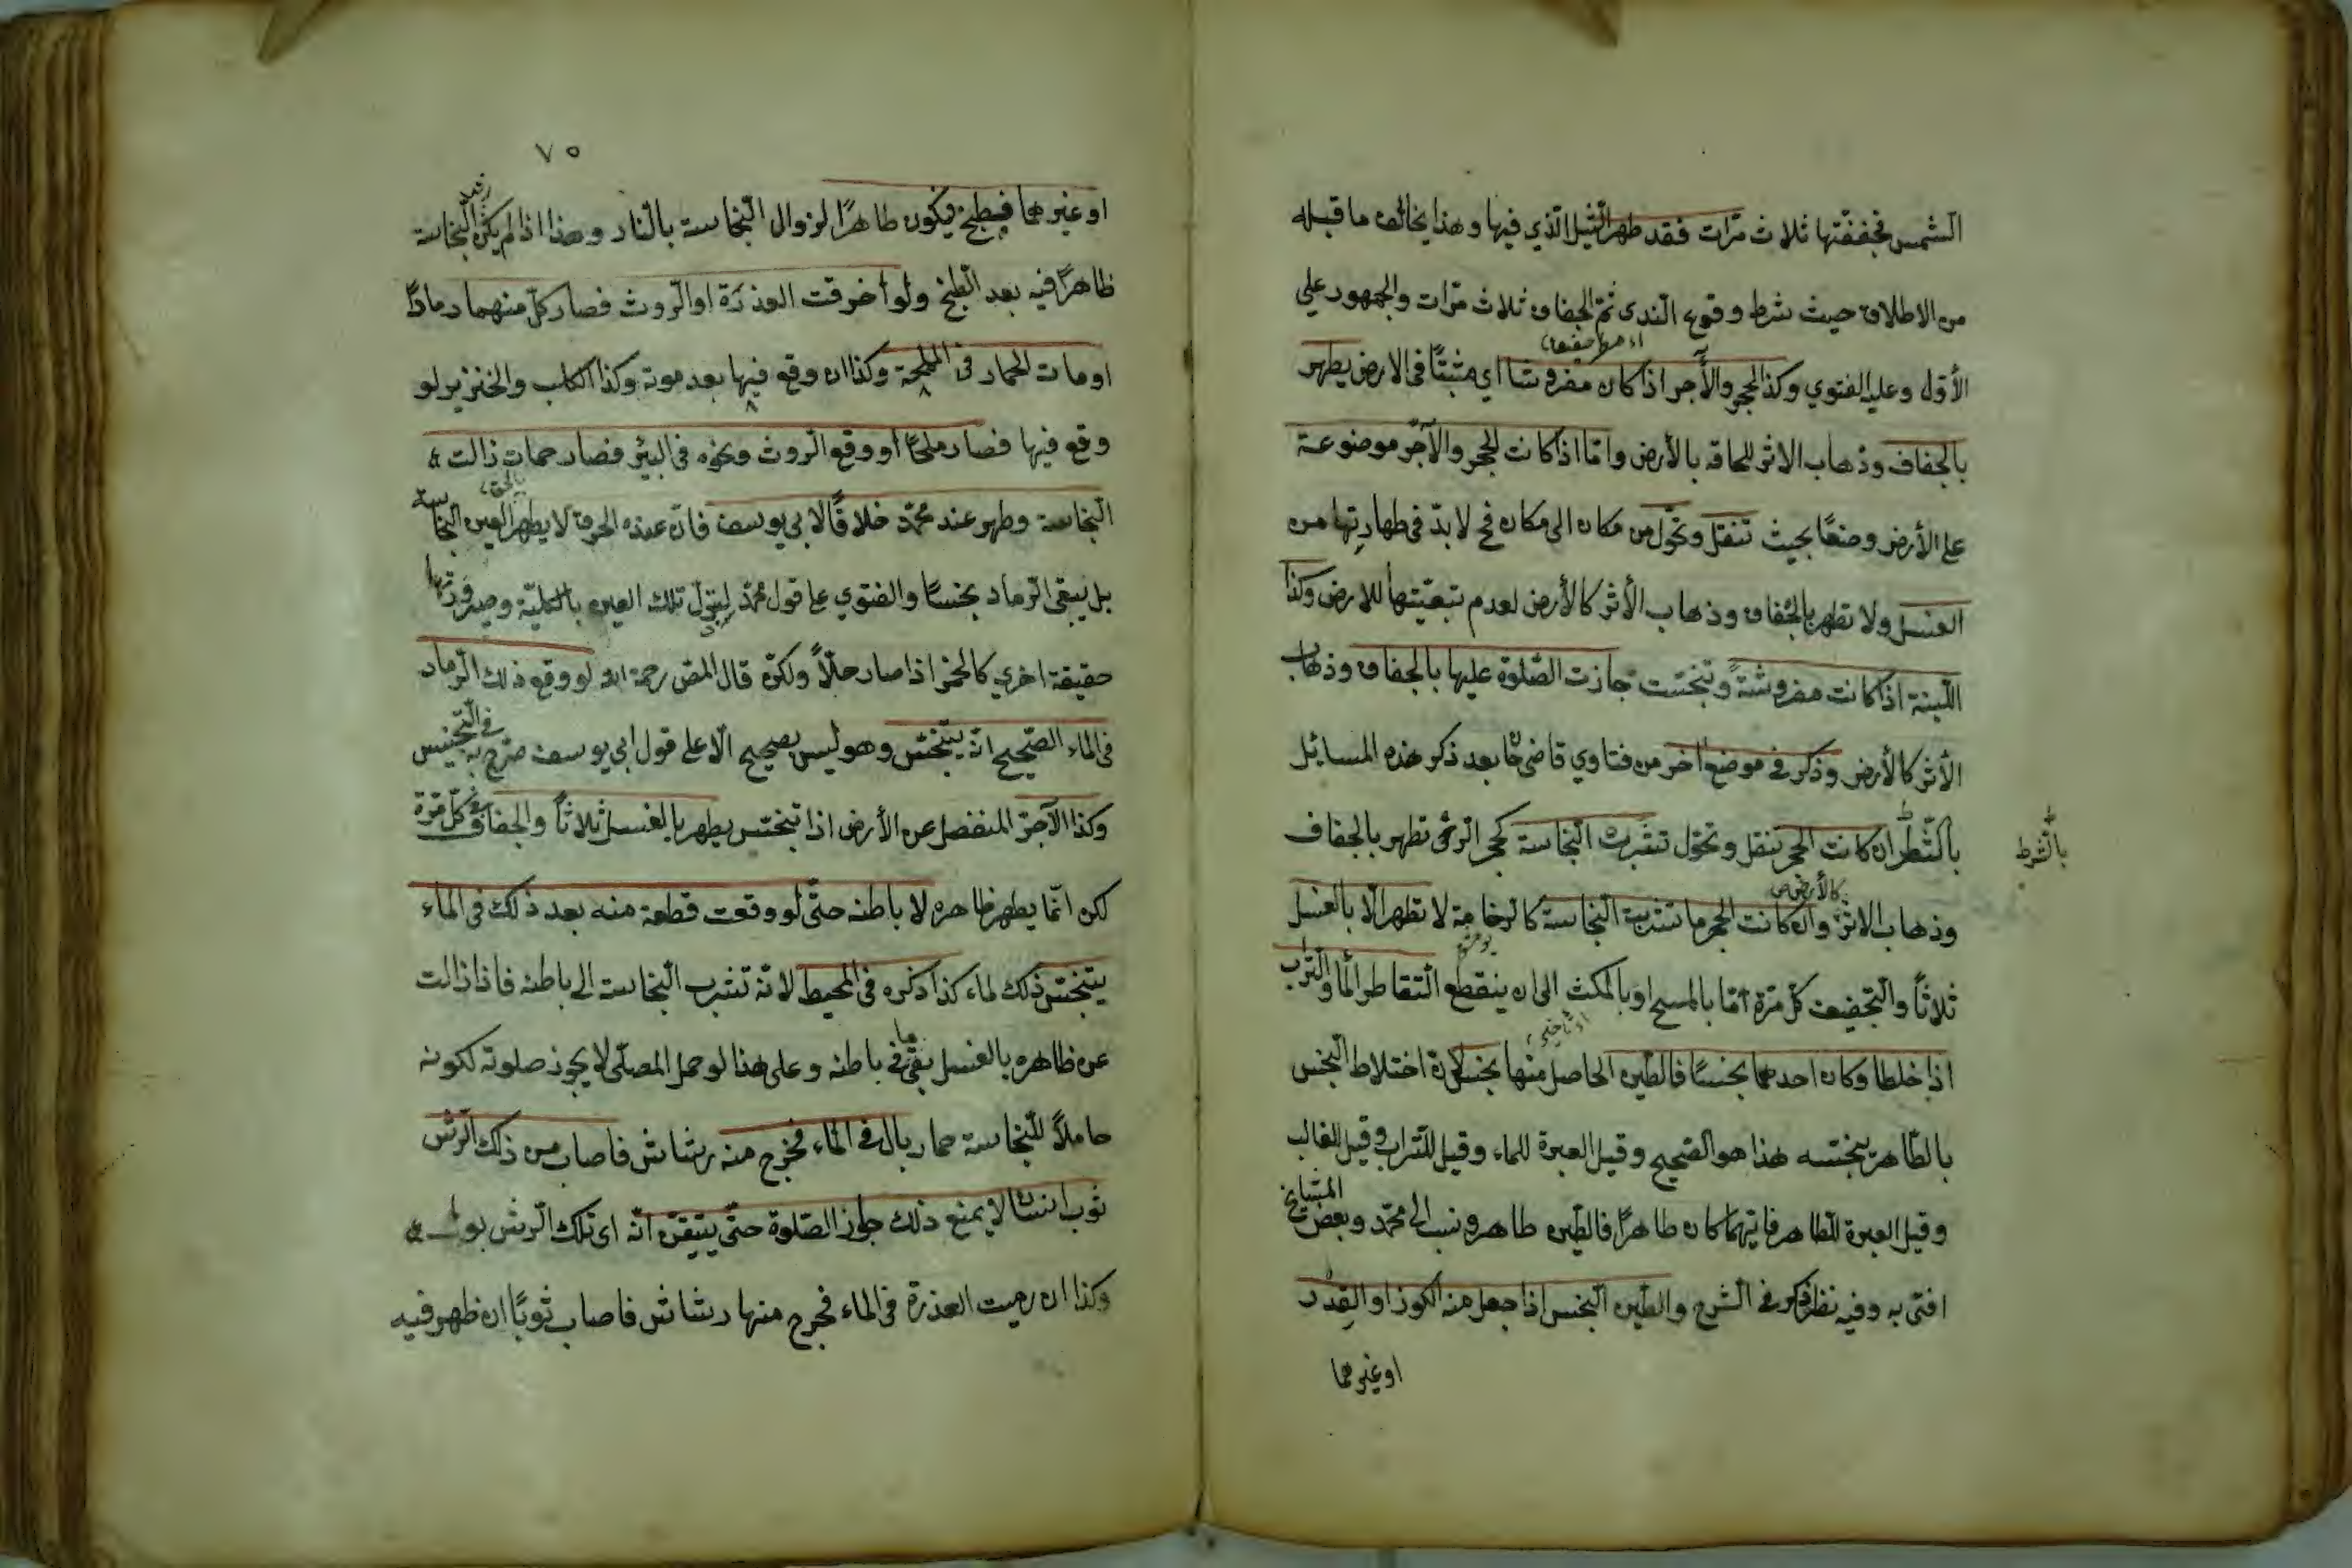 الشمس فجففتها ثلاث مرّات فقد طهر الثيل الذي فيها وهذا يخالف ما قبله
من الاطلاق حيث شرط وقوع الندى ثمّ الجفاف ثلاث مرّات والجمهور على
الأوّل وعليه الفتوي وكذا الحجر والآجر اذا كان مفروشا اي مثبتًا فى الارض يطهر
بالجفاف وذهاب الاثر للحاقه بالأرض وامّا اذا كانت الحجر والآجّر موضوعة
على الأرض وضعًا بحيث تنقل وتحّول من مكان الى مكان فح لا بدّ فى طهارتها من
الغسل ولا تطهر بالجفاف وذهاب الأثر كالأرض لعدم تبعيّتها للارض وكذا
اللّبنة اذا كانت مفروشةً وتنجّست جازت الصّلوة عليها بالجفاف وذهاب
الأثر كالأرض وذكر في موضع اخر من فتاوي قاضى خان بعد ذكر هذه المسائل
بالشّطر ان كانت الحجر تنقل وتحوّل تتشرب النّجاسة كحجر الرّحى تطهر بالجفاف
بالشّرط
كالأرض ص
وذهاب الاثر وان كانت الحجر ما تتشرب النّجاسة كالرخامة لا تطهر الّا بالغسل
ثلاثاً والتّجفيف كلّ مرّة امّا بالمسح او بالمكث الى ان ينقطع التّقاطر الماء والتّراب
اذا خلطا وكان احدهما نجسًا فالطّين الحاصل منها نجس لانّ اختلاط النّجس
بالطّاهر ينجّسه هذا هو الصّحيح وقيل العبرة للماء وقيل للتّراب وقيل للغالب
وقيل العبرة للطّاهر فايّهما كان طاهرًا فالطّين طاهر ونسب الى محمّد وبعض المشايخ
افتى به وفيه نظر ذكر فى الشّرح والطّين النّجس اذا جعل منه الكوز او القِدْر
او غيرهما
٧٥
او غيرهما فيطبخ فيكون طاهرًا لزوال النّجاسة بالنّار وهذا اذا لم يكن النّجاسة
ظاهرًا فيه بعد الطّبخ ولو احرقت العذرَة او الرّوث فصار كلّ منهما رمادًا
او مات الحمار فى المملحة وكذا ان وقع فيها بعد موته وكذا الكلب والخنزير لو
وقع فيها فصار ملحًا او وقع الرّوث ونحوه فى البئر فصار حمات زالت
النّجاسة وطهر عند محمّد خلافًا لابي يوسف فانّ عنده الحرق لا يطهر العين النّجاسة
بل يبقى الرّماد نجسًا والفتوي على قول محمّد لتبدّل تلك العين بالكليّة وصيرورتها
حقيقة اخري كالخمر اذا صار خلّاً ولكن قال المص رحمه الله لو وقع ذلك الرّماد
فى الماء الصّحيح انّه يتنجّس وهو ليس بصحيح الّا على قول ابي يوسف صرّح به فى التّجنيس
وكذا الآجّر المنفصل عن الأرض اذا تنجّس يطهر بالغسل ثلاثاً والجفاف فى كلّ مرّة
لكن انّما يطهر ظاهره لا باطنه حتّى لو وقعت قطعة منه بعد ذلك فى الماء
يتنجّس ذلك لماء كذا ذكره فى المحيط لانّه تتشرب النّجاسة الى باطنه فاذا زالت
عن ظاهره بالغسل بقى ما فى باطنه وعلى هذا لو حمل المصلّى لا يجوز صلوته لكونه
حاملاً للنّجاسة حمار بال فى الماء فخرج منه رشاش فاصاب من ذلك الرّش
ثوب انسان لا يمنع ذلك جواز الصّلوة حتّى يتيقّن انّه اى تلك الرّش بول
وكذا ان رميت العذرة فى الماء فخرج منها رشاش فاصاب ثوبًا ان ظهر فيه